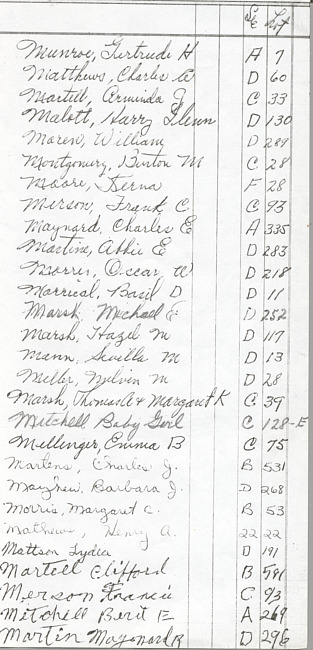 Sec Lot
Munroe, Gertrude H A 7
Matthews, Charles W D 60
Martell, Arminda J C 33
Malett, Harry Glenn D 130
Moren, William D 289
Montgomery, Burton M C 28
Moore, Verna F 28
Merson, Frank C. C 93
Maynard, Charles E A 335
Martins, Abbie E D 283
Morris, Oscar, W D 218
Morrical, Basil D D 11
Marsh, Michael E D 252
Marsh, Hazel M D 117
Mann, Sevilla M D 13
Miller, Melvin M D 28
Marsh, Thomas A & Margaret K C 39
Mitchell Baby Girl C 128-E
Mellenger, Emma B C 75
Martens, Charles J. B 531
Mayhew, Barbara J. D 268
Morris, Margaret C. B 53
Mathews, Henry A. 22 22
Mattson Lydia D 191
Martell Clifford B 591
Merson Francis C 93
Mitchell Berit E A 269
Martin Maynard R D 296